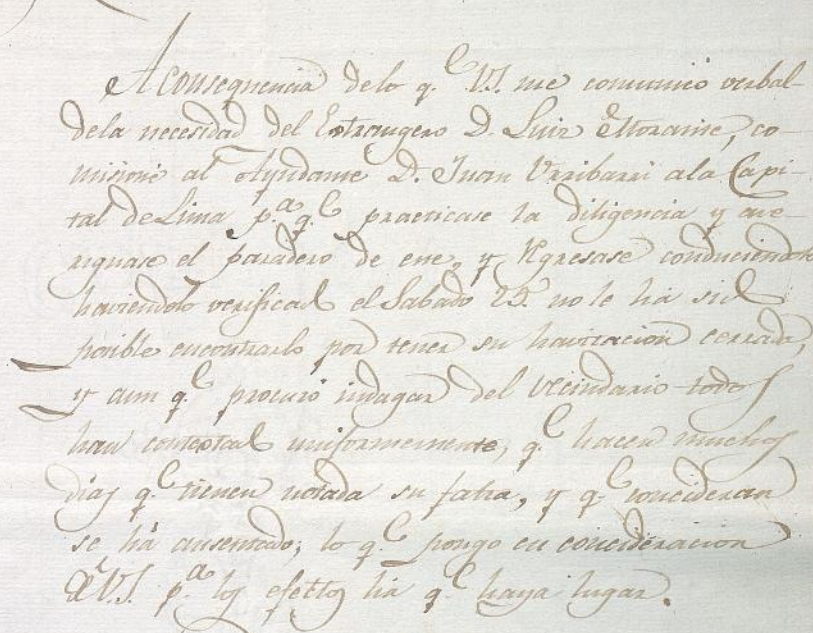 A consequencia delo q.e V.S. me comunicó verbal
dela necesidad del Extrangero D. Luiz Moranie, co-
misioné al Ayudante D. Juan Vrribarri ala Capi-
tal de Lima p.a q.e practicase la diligencia y ave-
riguase el paradero de ese, y Rgresase conduciendolo
haviendolo verificad el Sabado 25. no le ha sid
posible encontrarlo por tener su havitacion cerrada,
y aun q.e procuró indagar del Vecindario todos
han contextad uniformemente, q.e hacen muchos
dias q.e tienen notada su falta, y q.e concideran
se há ausentado; lo q.e pongo en concideracion
de V.S. p.a los efectos ha q.e haya lugar.